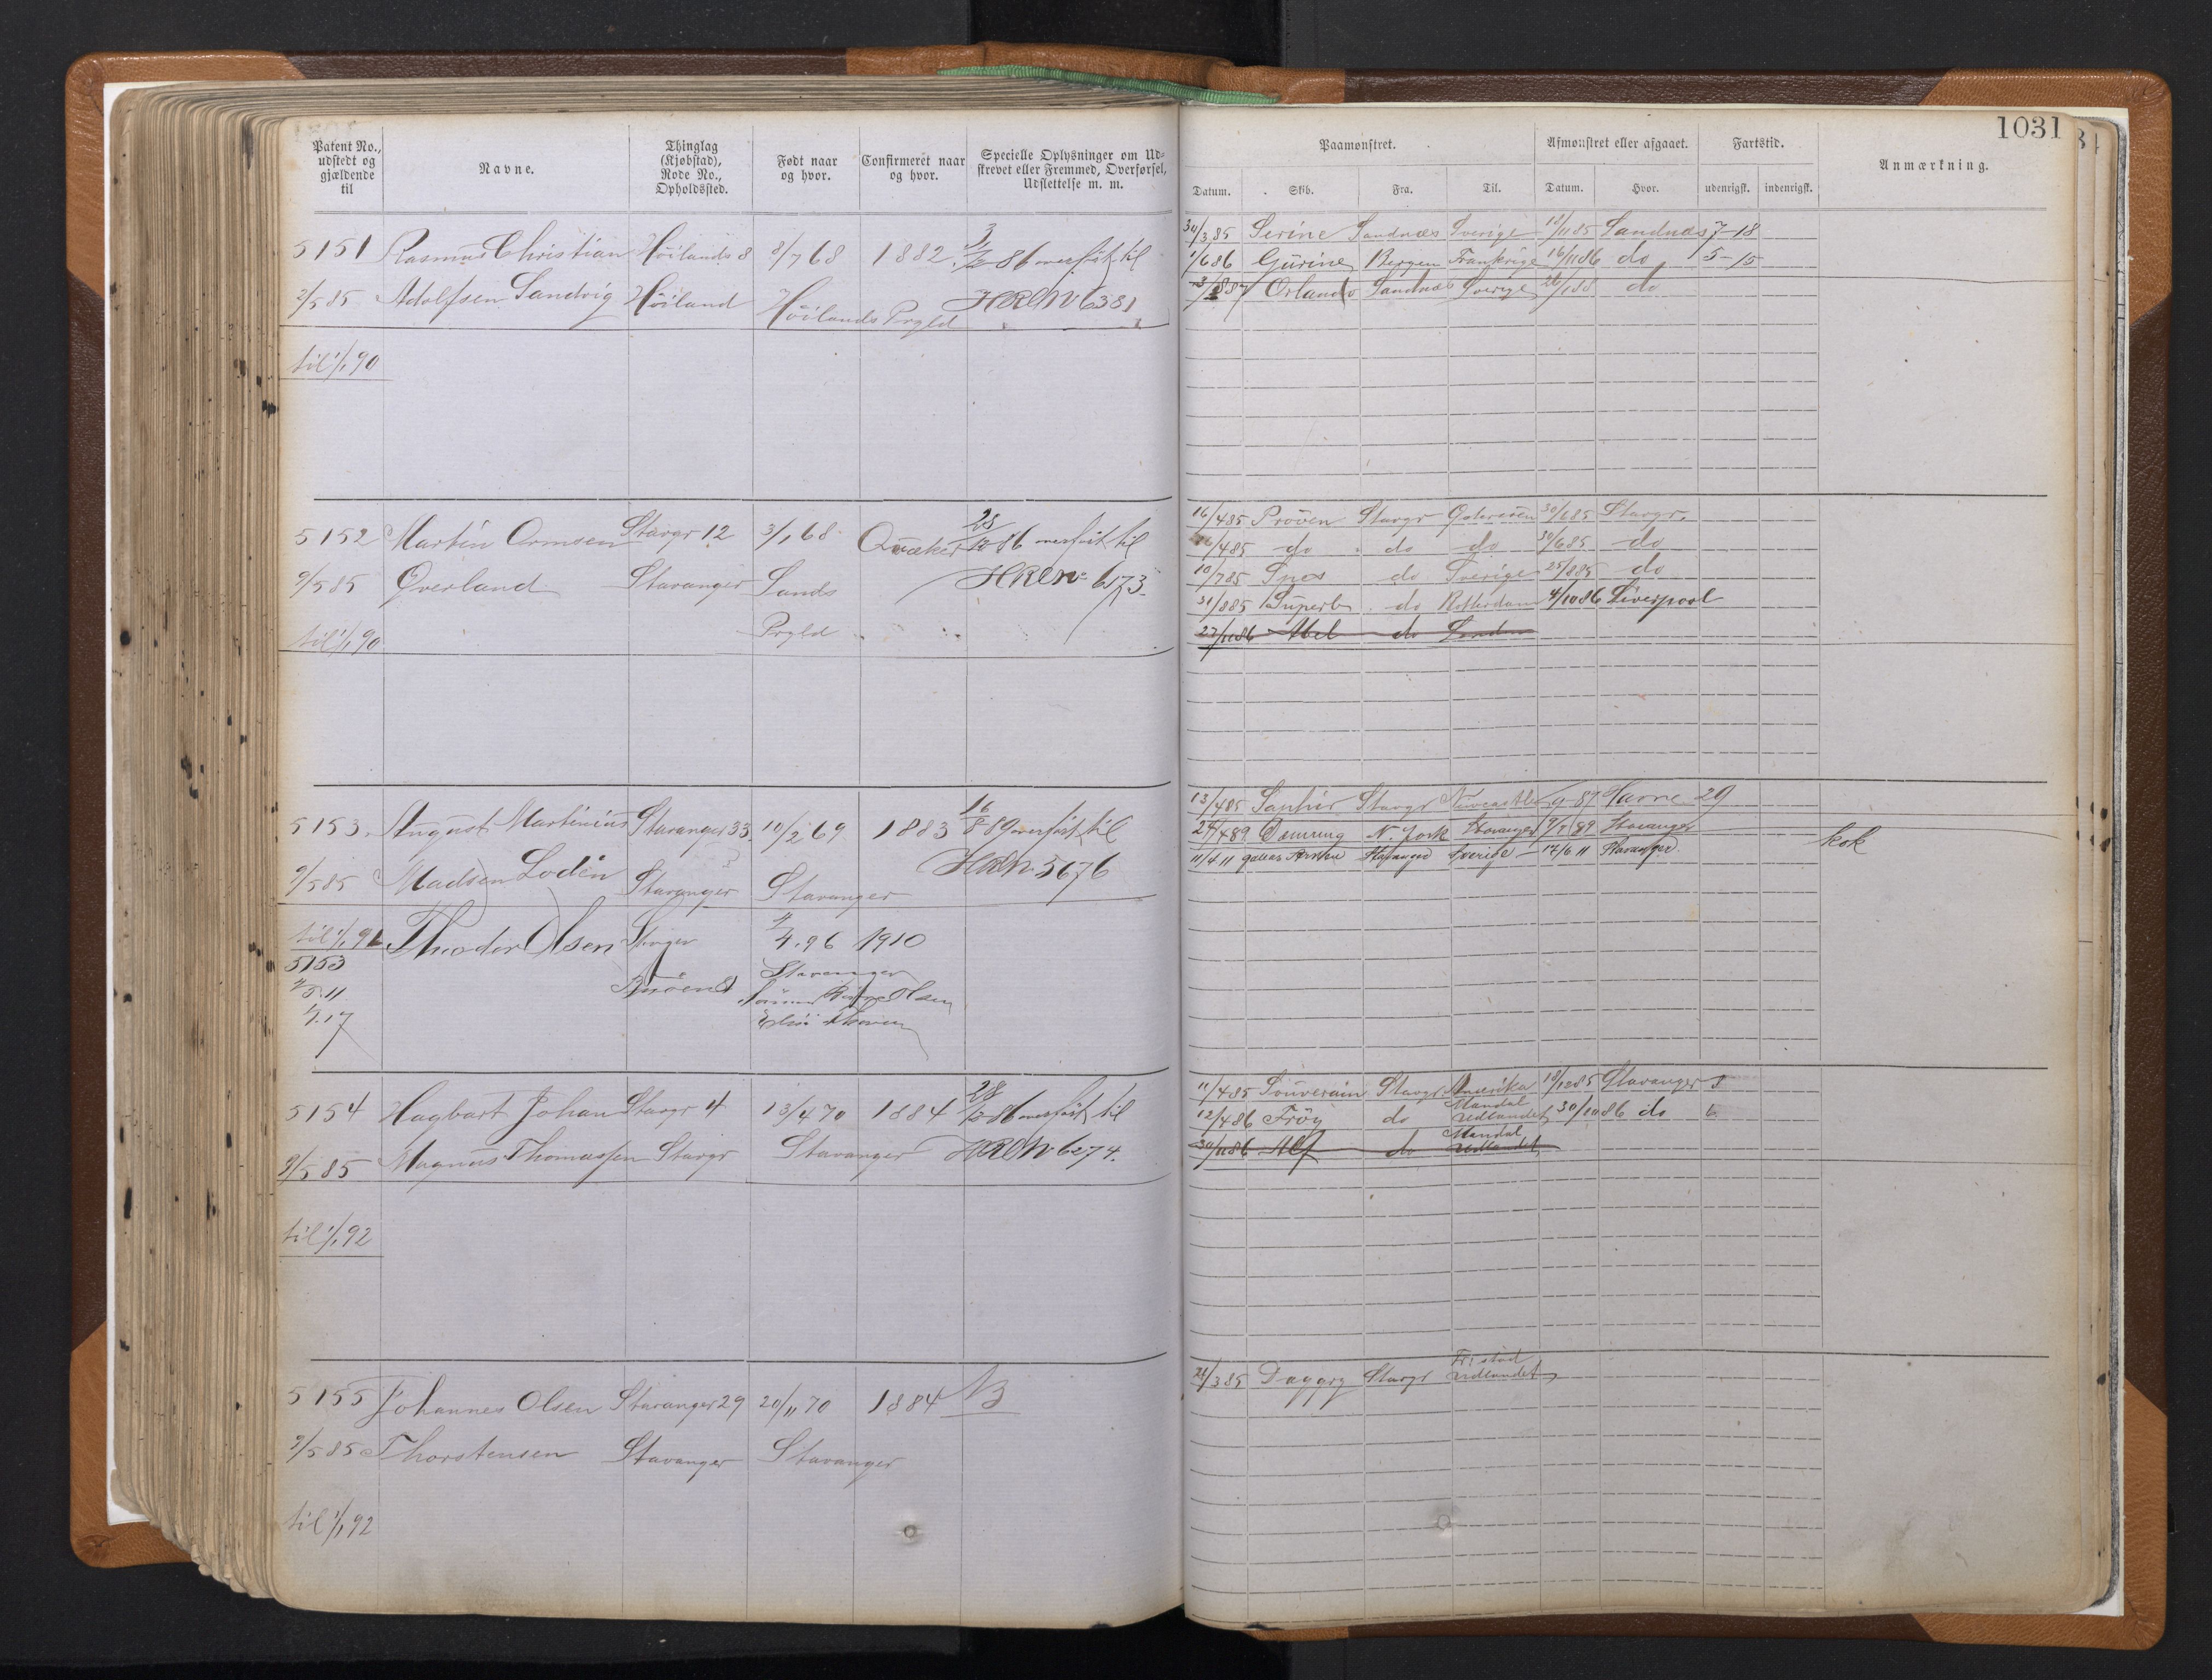 1031
Patent No., udstedt og gjældende til
Navne.
Thinglag (Kjøbstad), Rode No., Opholdssted.
Født naar og hvor.
Confirmeret naar og hvor.
Specielle Oplysninger om Udskrevet eller Fremmed, Overførsel, Udslettelse m. m.
Paamønstret.
Afmønstret eller afgaaet.
Fartstid.
Anmærkning.
Datum. Skib. Fra. Til. Datum. Hvor. udenrigsk. indenrigsk.
5151 Rasmus Christian Höilands 8 8/7 68 1882 3/12 86 overført til
2/5 85 Adolfsen Sandvig Höiland Höilands Prgld HRLN 6381
til 1/1 90
30/3 85 Serine Sandnæs Sverige 19/11 85 Sandnæs 7-18
1/6 86 Gurine Bergen Frankrige 16/11 86 do 5-15
Orlando Sandnæs Sverige do
5152 Martin Ormsen Stavgr 12 3/1 68 Qvæker 28/12 86 overført til
9/5 85 Överland Stavanger Sands HRLNo 6173
til 1/1 90 Prgld
16/4 85 Pröven Stavgr 30/6 85 Stavgr.
16/4 85 do do do 30/6 85 do
10/7 85 do Sverige 25/8 85 do
31/8 85 Superb do Rotterdam 4/10 86 Liverpool
27/11 86 Abel do London
5153. August Martinius Stavanger 33 10/2 69 1883 16/8 89 overført til
9/5 85 Madsen Lodin Stavanger Stavanger HRLN 5676
til 1/1 91 Theodor Olsen Stvgr 4/4.96 1910
5153 Stavanger
4/5.11 Olsen
1/1.17
13/4 85 Stavgr Newcastle 9-87 29
24/4 89 N. York Stavanger 9/7 89 Stavanger
11/4 11 Stavanger Sverige 17/6 11 Stavanger kok
5154 Hagbart Johan Stavgr 4 13/4 70 1884 28/12 86 overført til
9/5 85 Magnus Thomassen Stavgr Stavanger HRLN 6274.
til 1/1 92
11/4 85 Souverain Stavgr Amerika 18/12 85 Stavanger 8
12/4 86 Fröy do Mandal Udlandet 30/10 86 do 6
30/11 86 Alf do Mandal Udlandet
5155 Johannes Olsen Stavanger 29 20/11 70 1884 N3
9/5 85 Thorstensen Stavanger Stavanger
til 1/1 92
21/3 85 Daggry Stavgr Fr.stad Udlandet